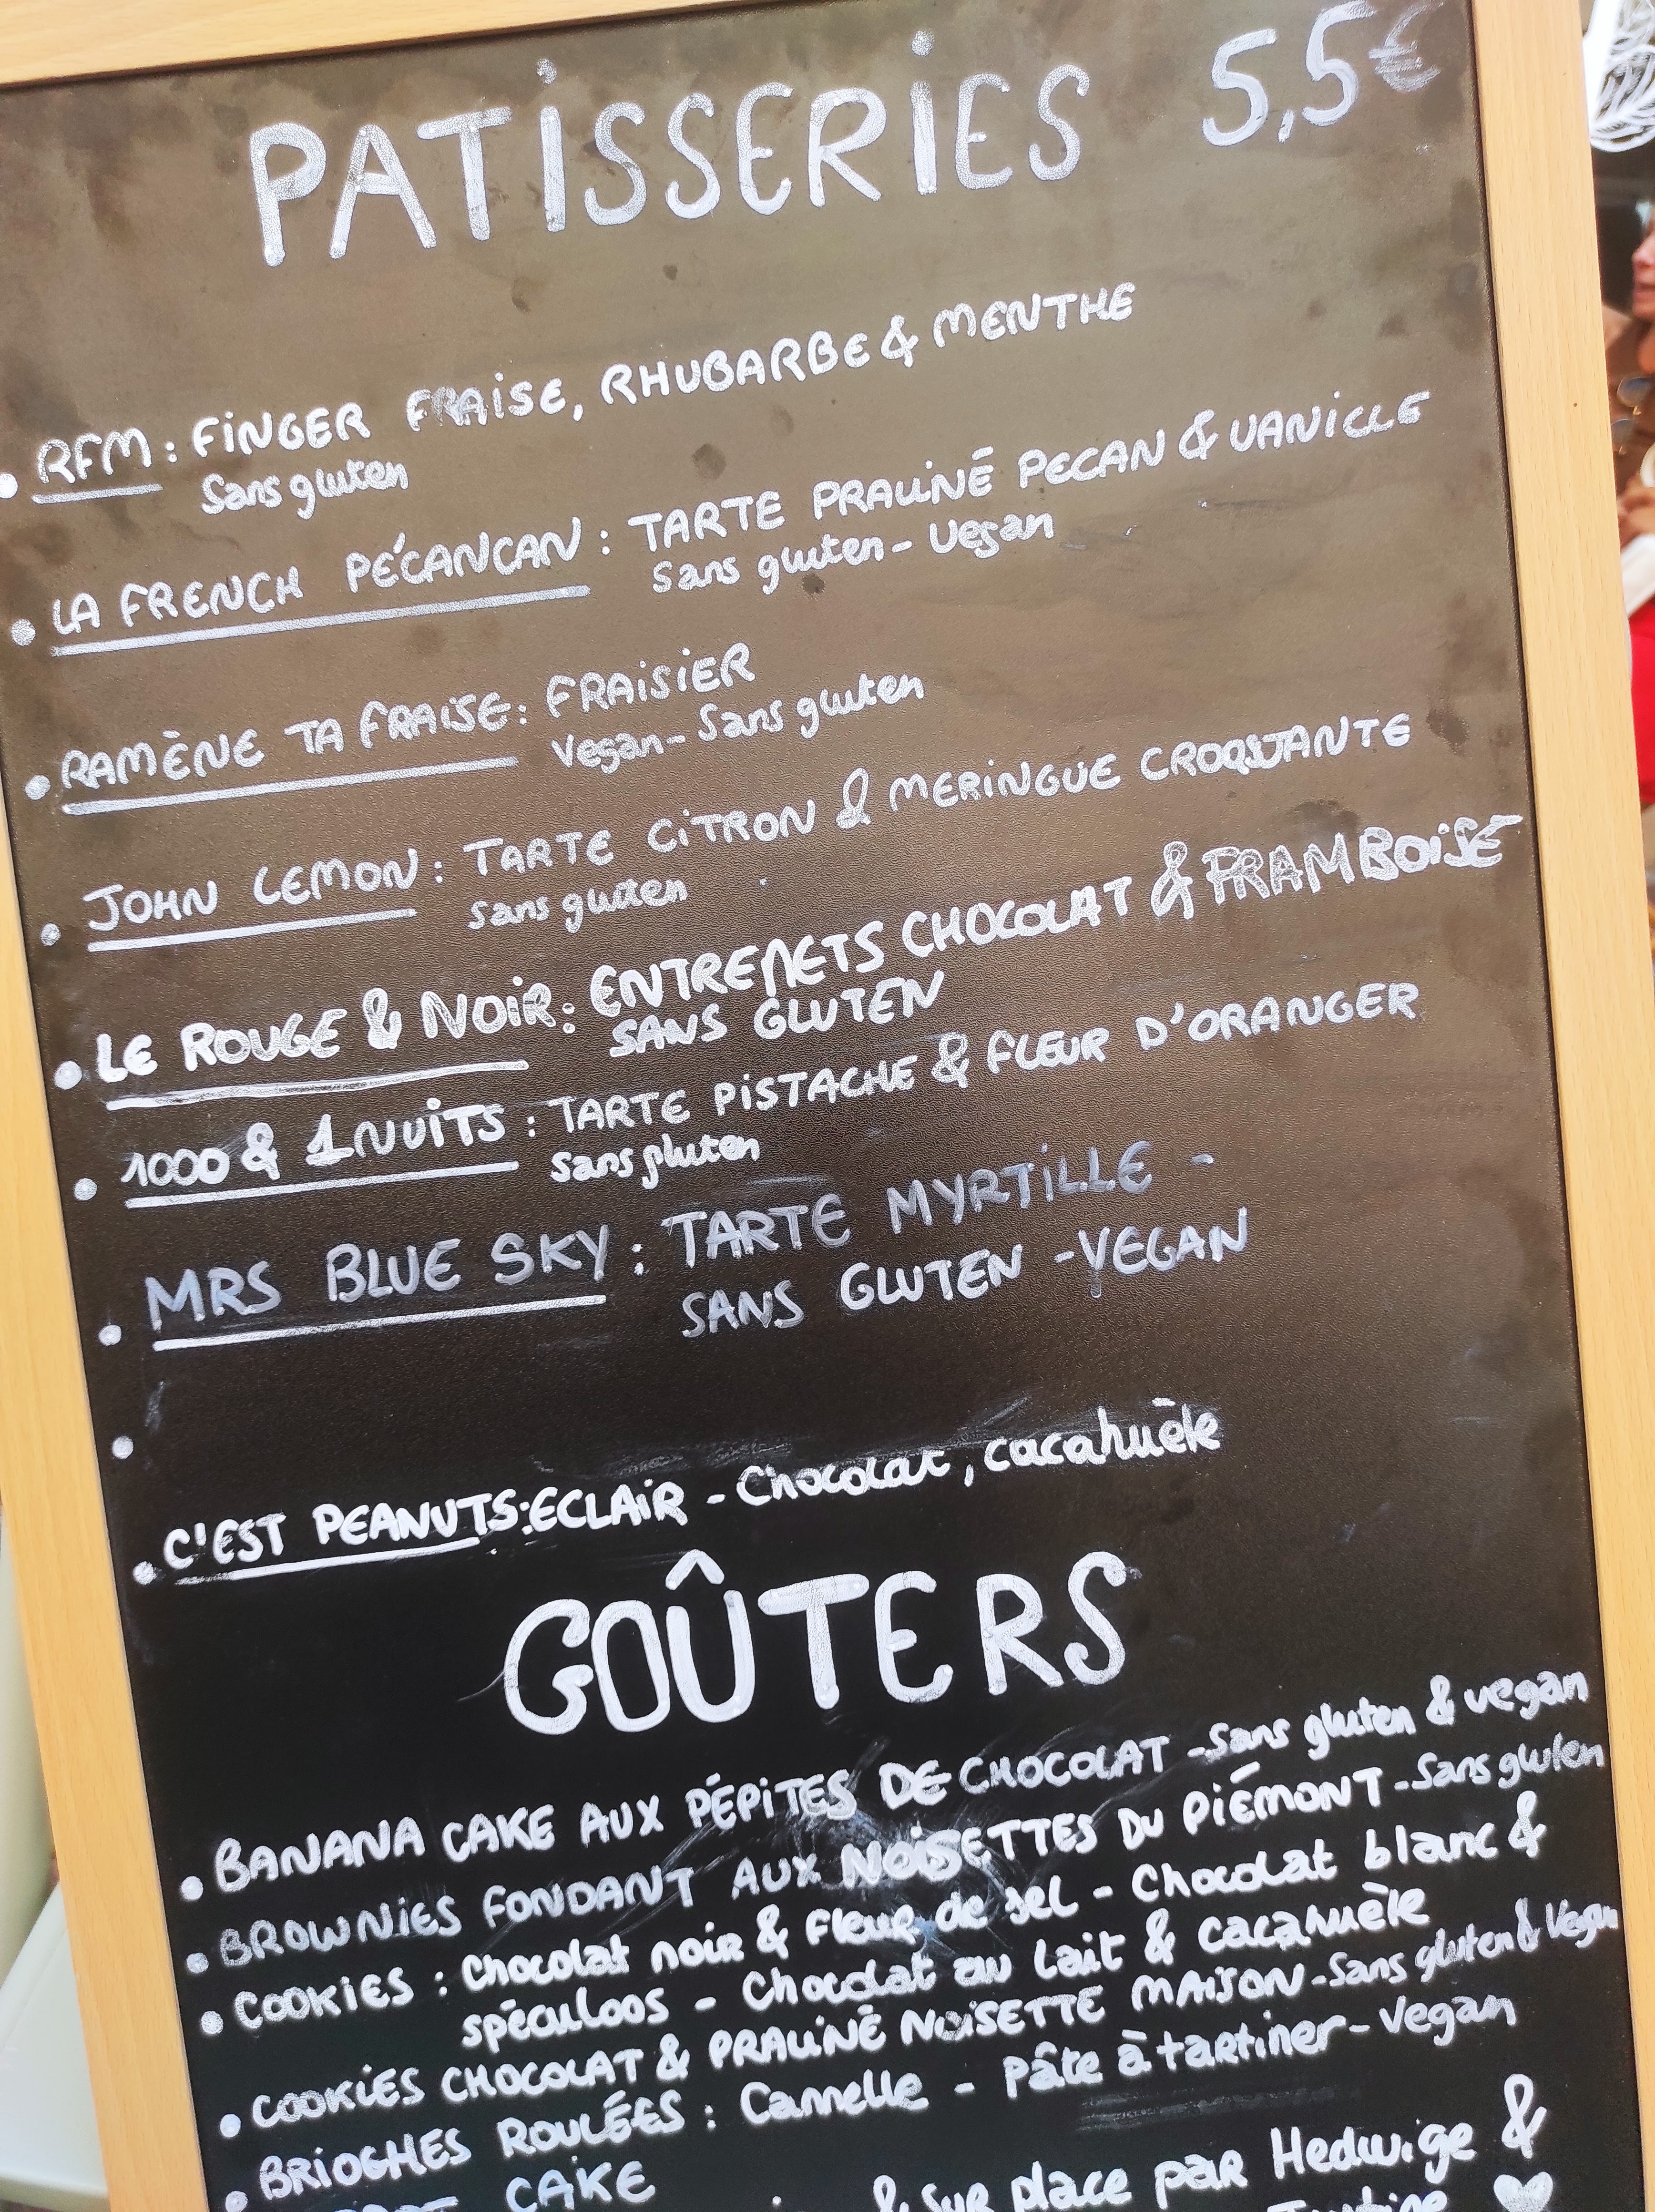 PATISSERIES 5,5€
• RFM : FINGER FRAISE, RHUBARBE & MENTHE
Sans gluten
• LA FRENCH PÉCANCAN : TARTE PRALINÉ PECAN & VANILLE
Sans gluten - Vegan
• RAMÈNE TA FRAISE : FRAISIER
Vegan - Sans gluten
• JOHN LEMON : TARTE CITRON & MERINGUE CROQUANTE
Sans gluten
• LE ROUGE & NOIR : ENTREMETS CHOCOLAT & FRAMBOISE
SANS GLUTEN
• 1000 & 1 NUITS : TARTE PISTACHE & FLEUR D'ORANGER
Sans gluten
• MRS BLUE SKY : TARTE MYRTILLE -
SANS GLUTEN - VEGAN
•
• C'EST PEANUTS : ECLAIR - Chocolat, cacahuète
GOÛTERS
• BANANA CAKE AUX PÉPITES DE CHOCOLAT - Sans gluten & vegan
• BROWNIES FONDANT AUX NOISETTES DU PIÉMONT - Sans gluten
• COOKIES : Chocolat noir & fleur de sel - Chocolat blanc &
spéculoos - Chocolat au lait & cacahuète
• COOKIES CHOCOLAT & PRALINÉ NOISETTE MAISON - Sans gluten & Vegan
• BRIOCHES ROULÉES : Cannelle - Pâte à tartiner - Vegan
CAKE
& sur place par Hedwige &